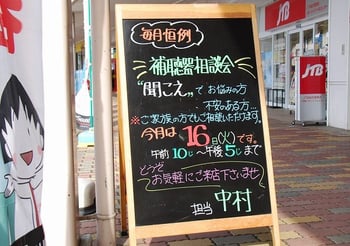 毎月恒例
補聴器相談会
"聞こえ"でお悩みの方
不安のある方…
※ご家族の方でもご相談いただけます。
今月は16日(火)です。
午前10じ〜午後5じまで
どうぞ
お気軽にご来店下さいませ
担当 中村
JTB
JTB